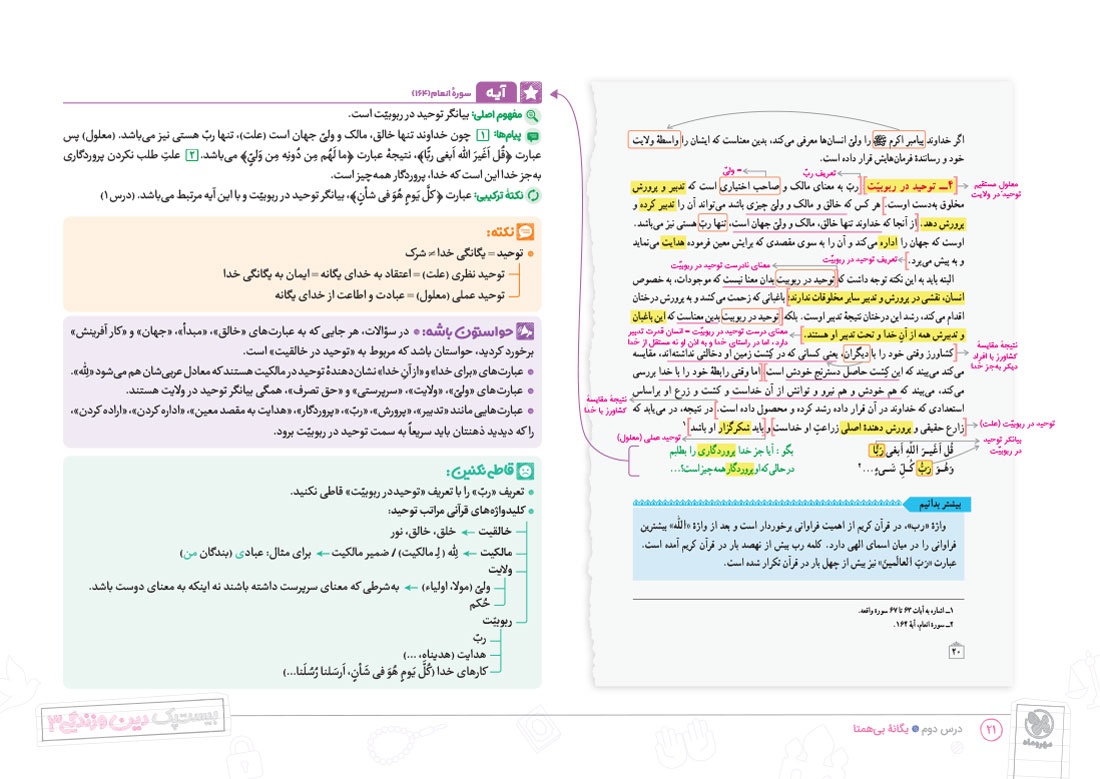 اگر خداوند پیامبر اکرم ﷺ را ولیّ انسان‌ها معرفی می‌کند، بدین معناست که ایشان را واسطهٔ ولایت
خود و رسانندهٔ فرمان‌هایش قرار داده است.
تعریف ربّ
= ولیّ
معلول مستقیم
توحید در ولایت
۴ــ توحید در ربوبیّت: ربّ به معنای مالک و صاحب اختیاری است که تدبیر و پرورش
مخلوق به‌دست اوست. هر کس که خالق و مالک و ولیّ چیزی باشد می‌تواند آن را تدبیر کرده و
پرورش دهد. از آنجا که خداوند تنها خالق، مالک و ولیّ جهان است، تنها ربّ هستی نیز می‌باشد.
اوست که جهان را اداره می‌کند و آن را به سوی مقصدی که برایش معین فرموده هدایت می‌نماید
و به پیش می‌برد.
تعریف توحید در ربوبیّت
معنای نادرست توحید در ربوبیّت
البته باید به این نکته توجه داشت که توحید در ربوبیت بدان معنا نیست که موجودات، به خصوص
انسان، نقشی در پرورش و تدبیر سایر مخلوقات ندارند؛ باغبانی که زحمت می‌کشد و به پرورش درختان
اقدام می‌کند، رشد این درختان نتیجهٔ تدبیر اوست. بلکه توحید در ربوبیت بدین معناست که این باغبان
و تدبیرش همه از آنِ خدا و تحت تدبیر او هستند.
معنای درست توحید در ربوبیّت = انسان قدرت تدبیر
دارد، اما در راستای خدا و به اذن او نه مستقل از خدا
نتیجهٔ مقایسهٔ
کشاورز با افراد
دیگر به‌جز خدا
کشاورز وقتی خود را با دیگران، یعنی کسانی که در کِشت زمین او دخالتی نداشته‌اند، مقایسه
می‌کند می‌بیند که این کِشت حاصل دسترنج خودش است. اما وقتی رابطهٔ خود را با خدا بررسی
می‌کند، می‌بیند که هم خودش و هم نیرو و توانش از آن خداست و کشت و زرع او براساس
نتیجهٔ مقایسهٔ
کشاورز با خدا
استعدادی که خداوند در آن قرار داده رشد کرده و محصول داده است. در نتیجه، در می‌یابد که
زارع حقیقی و پرورش دهندهٔ اصلی زراعتِ او خداست و باید شکرگزار او باشد.۱
توحید در ربوبیّت (علت)
توحید عملی (معلول)
بیانگر توحید
در ربوبیّت
قُل اَغَیرَ اللّٰهِ اَبغی رَبًّا
بگو : آیا جز خدا پروردگاری را بطلبم
وَ هُوَ رَبُّ کُلِّ شَیءٍ...۲
در حالی که او پروردگار همه چیز است؟...
بیشتر بدانیم
واژهٔ «رب»، در قرآن کریم از اهمیت فراوانی برخوردار است و بعد از واژهٔ «اللّٰه» بیشترین
فراوانی را در میان اسمای الهی دارد. کلمه رب بیش از نهصد بار در قرآن کریم آمده است.
عبارت «رَبّ العالَمینَ» نیز بیش از چهل بار در قرآن تکرار شده است.
۱ــ اشاره به آیات ۶۳ تا ۶۷ سورهٔ واقعه.
۲ــ سورهٔ انعام، آیهٔ ۱۶۴.
۲۰
آیه
سورهٔ انعام(۱۶۴)
مفهوم اصلی: بیانگر توحید در ربوبیّت است.
پیام‌ها: ۱ چون خداوند تنها خالق، مالک و ولیّ جهان است (علت)، تنها ربّ هستی نیز می‌باشد. (معلول) پس
عبارت ﴿قُل اَغَیرَ الله اَبغی رَبًّا﴾، نتیجهٔ عبارت ﴿ما لَهُم مِن دُونِهِ مِن وَلِیّ﴾ می‌باشد. ۲ علتِ طلب نکردن پروردگاری
به‌جز خدا این است که خدا، پروردگار همه چیز است.
نکتهٔ ترکیبی: عبارت ﴿کُلَّ یَومٍ هُوَ فی شَأنٍ﴾، بیانگر توحید در ربوبیّت و با این آیه مرتبط می‌باشد. (درس۱)
نکته:
توحید = یگانگی خدا ≠ شرک
توحید نظری (علت) = اعتقاد به خدای یگانه = ایمان به یگانگی خدا
توحید عملی (معلول) = عبادت و اطاعت از خدای یگانه
حواستون باشه: • در سؤالات، هر جایی که به عبارت‌های «خالق»، «مبدأ»، «جهان» و «کار آفرینش»
برخورد کردید، حواستان باشد که مربوط به «توحید در خالقیت» است.
عبارت‌های «برای خدا» و «از آنِ خدا» نشان‌دهندهٔ توحید در مالکیت هستند که معادل عربی‌شان هم می‌شود «لِلّٰه».
عبارت‌های «ولیّ»، «ولایت»، «سرپرستی» و «حق تصرف»، همگی بیانگر توحید در ولایت هستند.
عبارت‌هایی مانند «تدبیر»، «پرورش»، «ربّ»، «پروردگار»، «هدایت به مقصد معین»، «اداره کردن»، «اراده کردن»،
را که دیدید ذهنتان باید سریعاً به سمت توحید در ربوبیّت برود.
قاطی نکنین:
تعریف «ربّ» را با تعریف «توحید در ربوبیّت» قاطی نکنید.
کلیدواژه‌های قرآنی مراتب توحید:
خالقیت ← خلق، خالق، نور
مالکیت ← لِلّٰه (لِـ مالکیت) / ضمیر مالکیت ← برای مثال: عبادی (بندگان من)
ولایت
ولیّ (مولا، اولیاء) ← به‌شرطی که معنای سرپرست داشته باشند نه اینکه به معنای دوست باشد.
حُکم
ربوبیّت
ربّ
هدایت (هدیناه، ...)
کارهای خدا (کُلَّ یَومٍ هُوَ فی شَأنٍ، اَرسَلنا رُسُلَنا...)
۲۱
درس دوم • یگانهٔ بی‌همتا
بیست‌پک دین و زندگی ۳
مهروماه